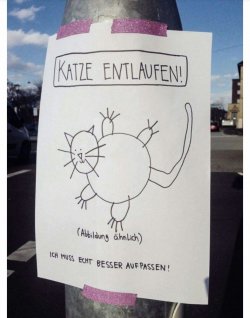 KATZE ENTLAUFEN!
(Abbildung ähnlich)
ICH MUSS ECHT BESSER AUFPASSEN!